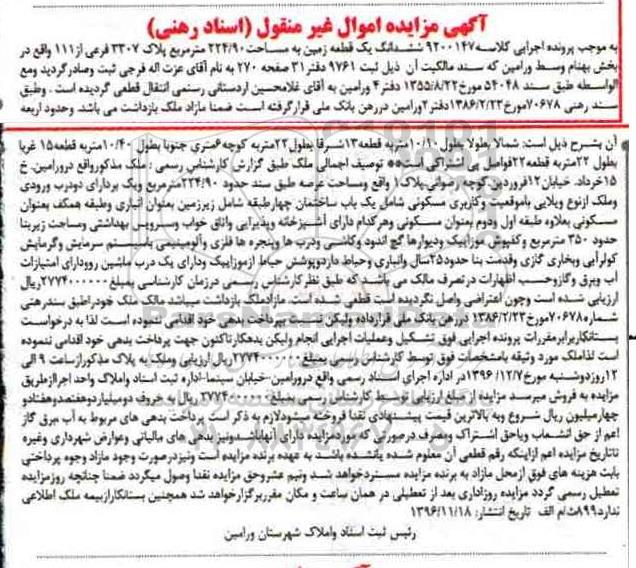 آگهی مزایده اموال غیر منقول (اسناد رهنی)
به موجب پرونده اجرایی کلاسه ۹۲۰۰۱۴۷ ششدانگ یک قطعه زمین به مساحت ۲۲۴/۹۰ مترمربع پلاک ۳۳۰۷ فرعی از ۱۱۱ واقع در
بخش بهنام وسط ورامین که سند مالکیت آن ذیل ثبت ۹۷۶۱ دفتر ۳۱ صفحه ۲۷۰ به نام آقای عزت اله فرجی ثبت وصادرگردید ومع
الواسطه طبق سند ۵۴۰۴۸ مورخ ۱۳۵۵/۸/۲۲ دفتر ۴ ورامین به آقای غلامحسین اردستانی رستمی انتقال قطعی گردیده است . وطبق
سند رهنی ۷۰۶۷۸ مورخ ۱۳۸۶/۲/۲۳ دفتر ۲ ورامین دررهن بانک ملی قرارگرفته است ضمنا مازاد ملک بازداشت می باشد. وحدود اربعه
آن بشرح ذیل است: شمالا بطولا بطول ۱۰/۱۰ متربه قطعه ۱۳ شرقا بطول ۲۲ متربه کوچه ۶ متری جنوبا بطول ۱۰/۴۰ متربه قطعه ۱۵ غربا
بطول ۲۲ متربه قطعه ۲۲ فواصل پی اشتراکی است** توصیف اجمالی ملک طبق گزارش کارشناس رسمی : ملک مذکورواقع درورامین. خ
۱۵ خرداد. خیابان ۱۲ فروردین کوچه رضوانی پلاک ۱ واقع ومساحت عرصه طبق سند حدود ۲۲۴/۹۰ مترمربع وپک بردارای دودرب ورودی
وملک ازنوع ویلایی باموقعیت وکاربری مسکونی شامل یک باب ساختمان چهارطبقه شامل زیرزمین بعنوان انباری وطبقه همکف بعنوان
مسکونی بعلاوه طبقه اول ودوم بعنوان مسکونی وهرکدام دارای آشپزخانه وپذیرایی واتاق خواب وسرویس بهداشتی ومساحت زیربنا
حدود ۳۵۰ مترمربع وکفپوش موزاییک ودیوارها گچ اندود وکاشی ودرب ها وپنجره ها فلزی وآلومینیمی باسیستم سرمایش وگرمایش
کولرآبی وبخاری گازی وقدمت بنا حدود ۲۵ سال وانباری وحیاط داردوپوشش حیاط ازموزاییک ودارای یک درب ماشین روودارای امتیازات
آب وبرق وگازوحسب اظهارات درتصرف مالک می باشد که طبق نظر کارشناس رسمی درزمان کارشناسی بمبلغ ۲۷۷۴۰۰۰۰۰۰ ریال
ارزیابی شده است وچون اعتراضی واصل نگردیده است قطعی شده است. مازادملک بازداشت میباشد مالک ملک خودراطبق سندرهنی
شماره ۷۰۶۷۸ مورخ ۱۳۸۶/۲/۲۳ دررهن بانک ملی قرارداده ولیکن نسبت به پرداخت بدهی خود اقدامی ننموده است لذا به درخواست
بستانکاربرابرمقررات پرونده اجرایی فوق تشکیل وعملیات اجرایی انجام ولیکن بدهکارتاکنون جهت پرداخت بدهی خود اقدامی ننموده
است لذاملک مورد وثیقه بامشخصات فوق توسط کارشناس رسمی بمبلغ ۲۷۷۴۰۰۰۰۰۰ ریال ارزیابی وملک به پلاک مذکورازساعت ۹ الی
۱۲ روزدوشنبه مورخ ۱۳۹۶/۱۲/۷ در اداره اجرای اسناد رسمی واقع درورامین-خیابان سینما-اداره ثبت اسناد واملاک واحد اجراازطریق
مزایده به فروش میرسد مزایده از مبلغ ارزیابی توسط کارشناس رسمی بمبلغ ۲۷۷۴۰۰۰۰۰۰ ریال به حروف دومیلیاردوهفتصدوهفتادو
چهارمیلیون ریال شروع وبه بالاترین قیمت پیشنهادی نقدا فروخته میشودلازم به ذکر است پرداخت بدهی های مربوط به آب برق گاز
اعم از حق انشعاب وياحق اشتراک ومصرف درصورتی که موردمزایده دارای آنهاباشدونیز بدهی های مالیاتی وعوارض شهرداری وغیره
تاتاریخ مزایده اعم ازاینکه رقم قطعی آن معلوم شده یانشده باشد به عهده برنده مزایده است ونیزدرصورت وجود مازاد وجوه پرداختی
بابت هزینه های فوق ازمحل مازاد به برنده مزایده مستردخواهد شد ونیم عشروحق مزایده نقدا وصول میگردد ضمنا چنانچه روزمزایده
تعطیل رسمی گردد مزایده روزاداری بعد از تعطیلی در همان ساعت و مکان مقرربرگزارخواهد شد همچنین بستانکارازبیمه ملک اطلاعی
ندارد ۸۹۹ث/م الف تاریخ انتشار: ۱۳۹۶/۱۱/۱۸
رئیس ثبت اسناد واملاک شهرستان ورامین